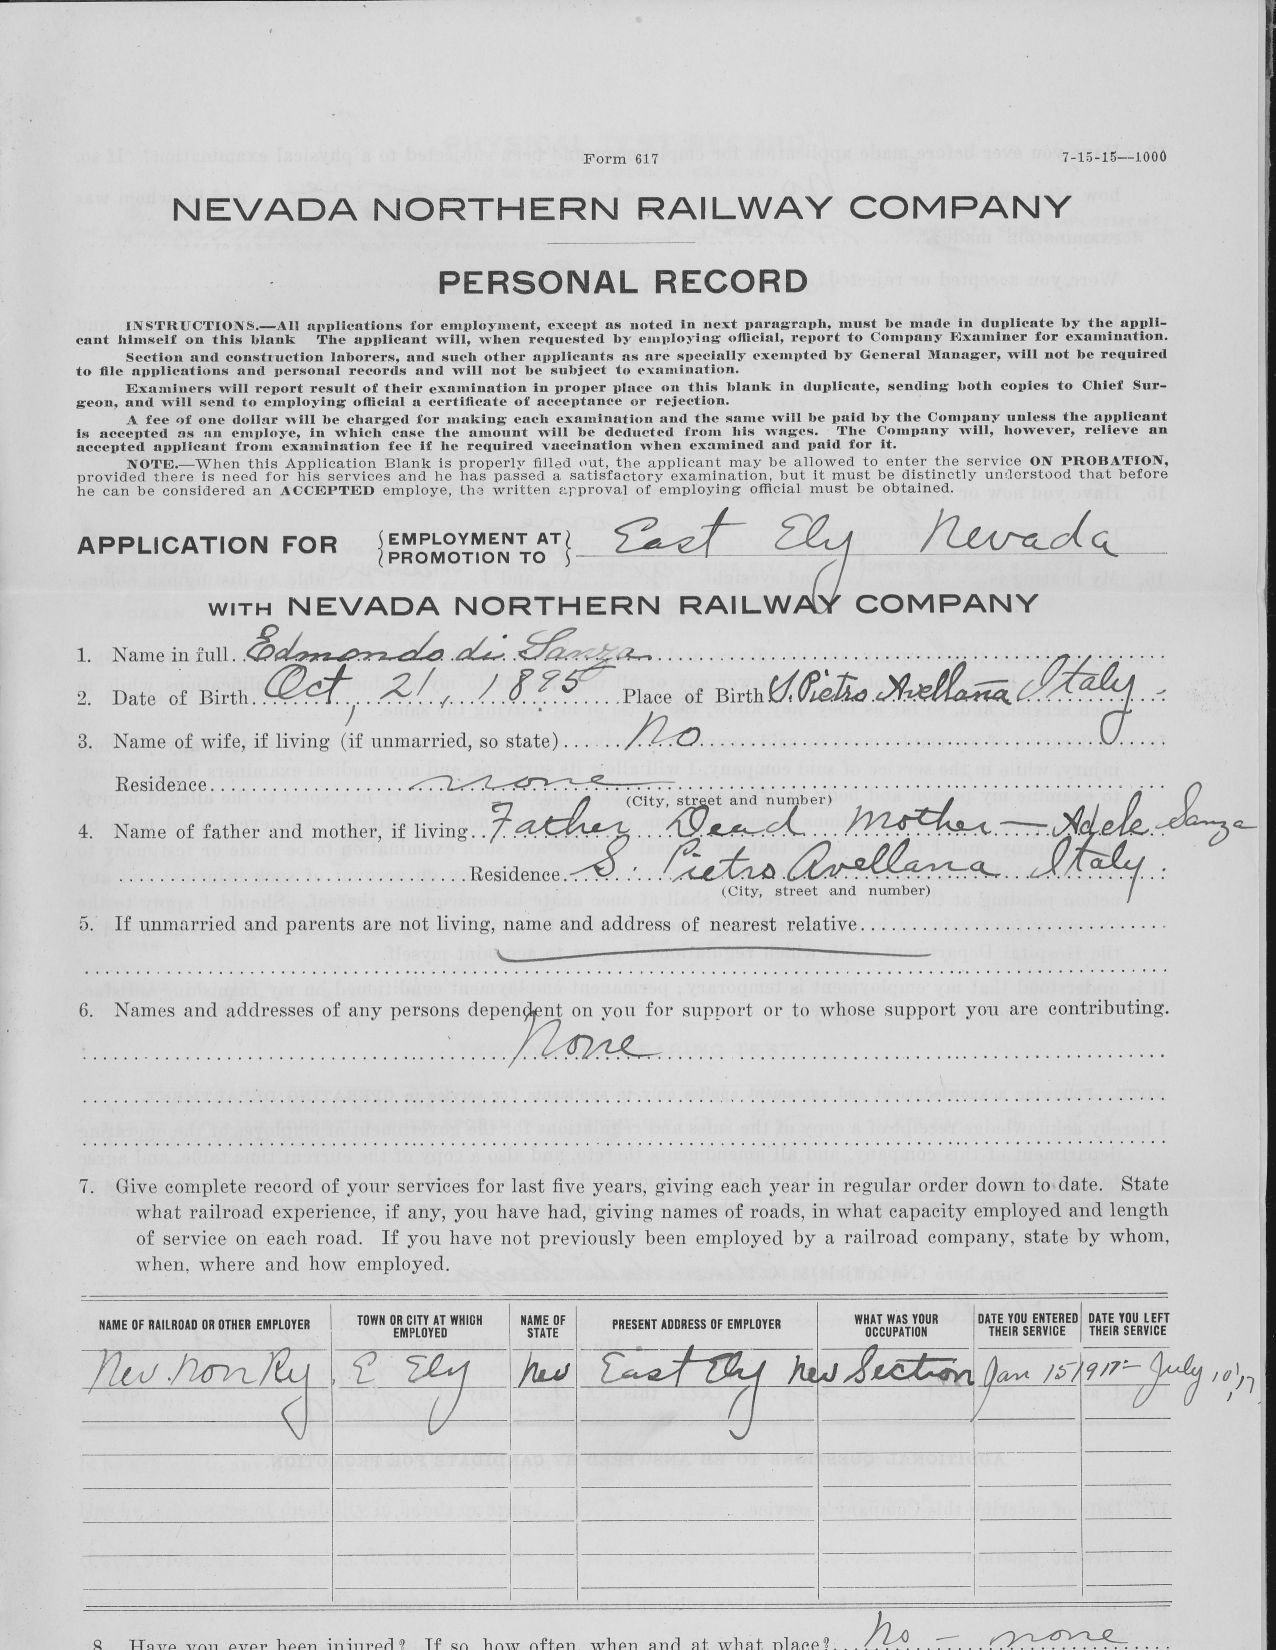 Form 617 7-15-15—1000
NEVADA NORTHERN RAILWAY COMPANY
PERSONAL RECORD
INSTRUCTIONS.—All applications for employment, except as noted in next paragraph, must be made in duplicate by the appli-
cant himself on this blank The applicant will, when requested by employing official, report to Company Examiner for examination.
Section and construction laborers, and such other applicants as are specially exempted by General Manager, will not be required
to file applications and personal records and will not be subject to examination.
Examiners will report result of their examination in proper place on this blank in duplicate, sending both copies to Chief Sur-
geon, and will send to employing official a certificate of acceptance or rejection.
A fee of one dollar will be charged for making each examination and the same will be paid by the Company unless the applicant
is accepted as an employe, in which case the amount will be deducted from his wages. The Company will, however, relieve an
accepted applicant from examination fee if he required vaccination when examined and paid for it.
NOTE.—When this Application Blank is properly filled out, the applicant may be allowed to enter the service ON PROBATION,
provided there is need for his services and he has passed a satisfactory examination, but it must be distinctly understood that before
he can be considered an ACCEPTED employe, the written approval of employing official must be obtained.
APPLICATION FOR { EMPLOYMENT AT } East Ely Nevada
{ PROMOTION TO }
WITH NEVADA NORTHERN RAILWAY COMPANY
1. Name in full Edmondo di Sanza
2. Date of Birth Oct, 21, 1895 Place of Birth S. Pietro Avellana Italy
3. Name of wife, if living (if unmarried, so state) No
Residence none
(City, street and number)
4. Name of father and mother, if living Father Dead Mother — Adele Sanza
Residence S. Pietro Avellana Italy
(City, street and number)
5. If unmarried and parents are not living, name and address of nearest relative
6. Names and addresses of any persons dependent on you for support or to whose support you are contributing.
None
7. Give complete record of your services for last five years, giving each year in regular order down to date. State
what railroad experience, if any, you have had, giving names of roads, in what capacity employed and length
of service on each road. If you have not previously been employed by a railroad company, state by whom,
when, where and how employed.
NAME OF RAILROAD OR OTHER EMPLOYER TOWN OR CITY AT WHICH EMPLOYED NAME OF STATE PRESENT ADDRESS OF EMPLOYER WHAT WAS YOUR OCCUPATION DATE YOU ENTERED THEIR SERVICE DATE YOU LEFT THEIR SERVICE
Nev. Non Ry E Ely Nev East Ely Nev Section Jan 15 1917 - July 10, 17
8 Have you ever been injured? If so, how often, when and at what place? No - none